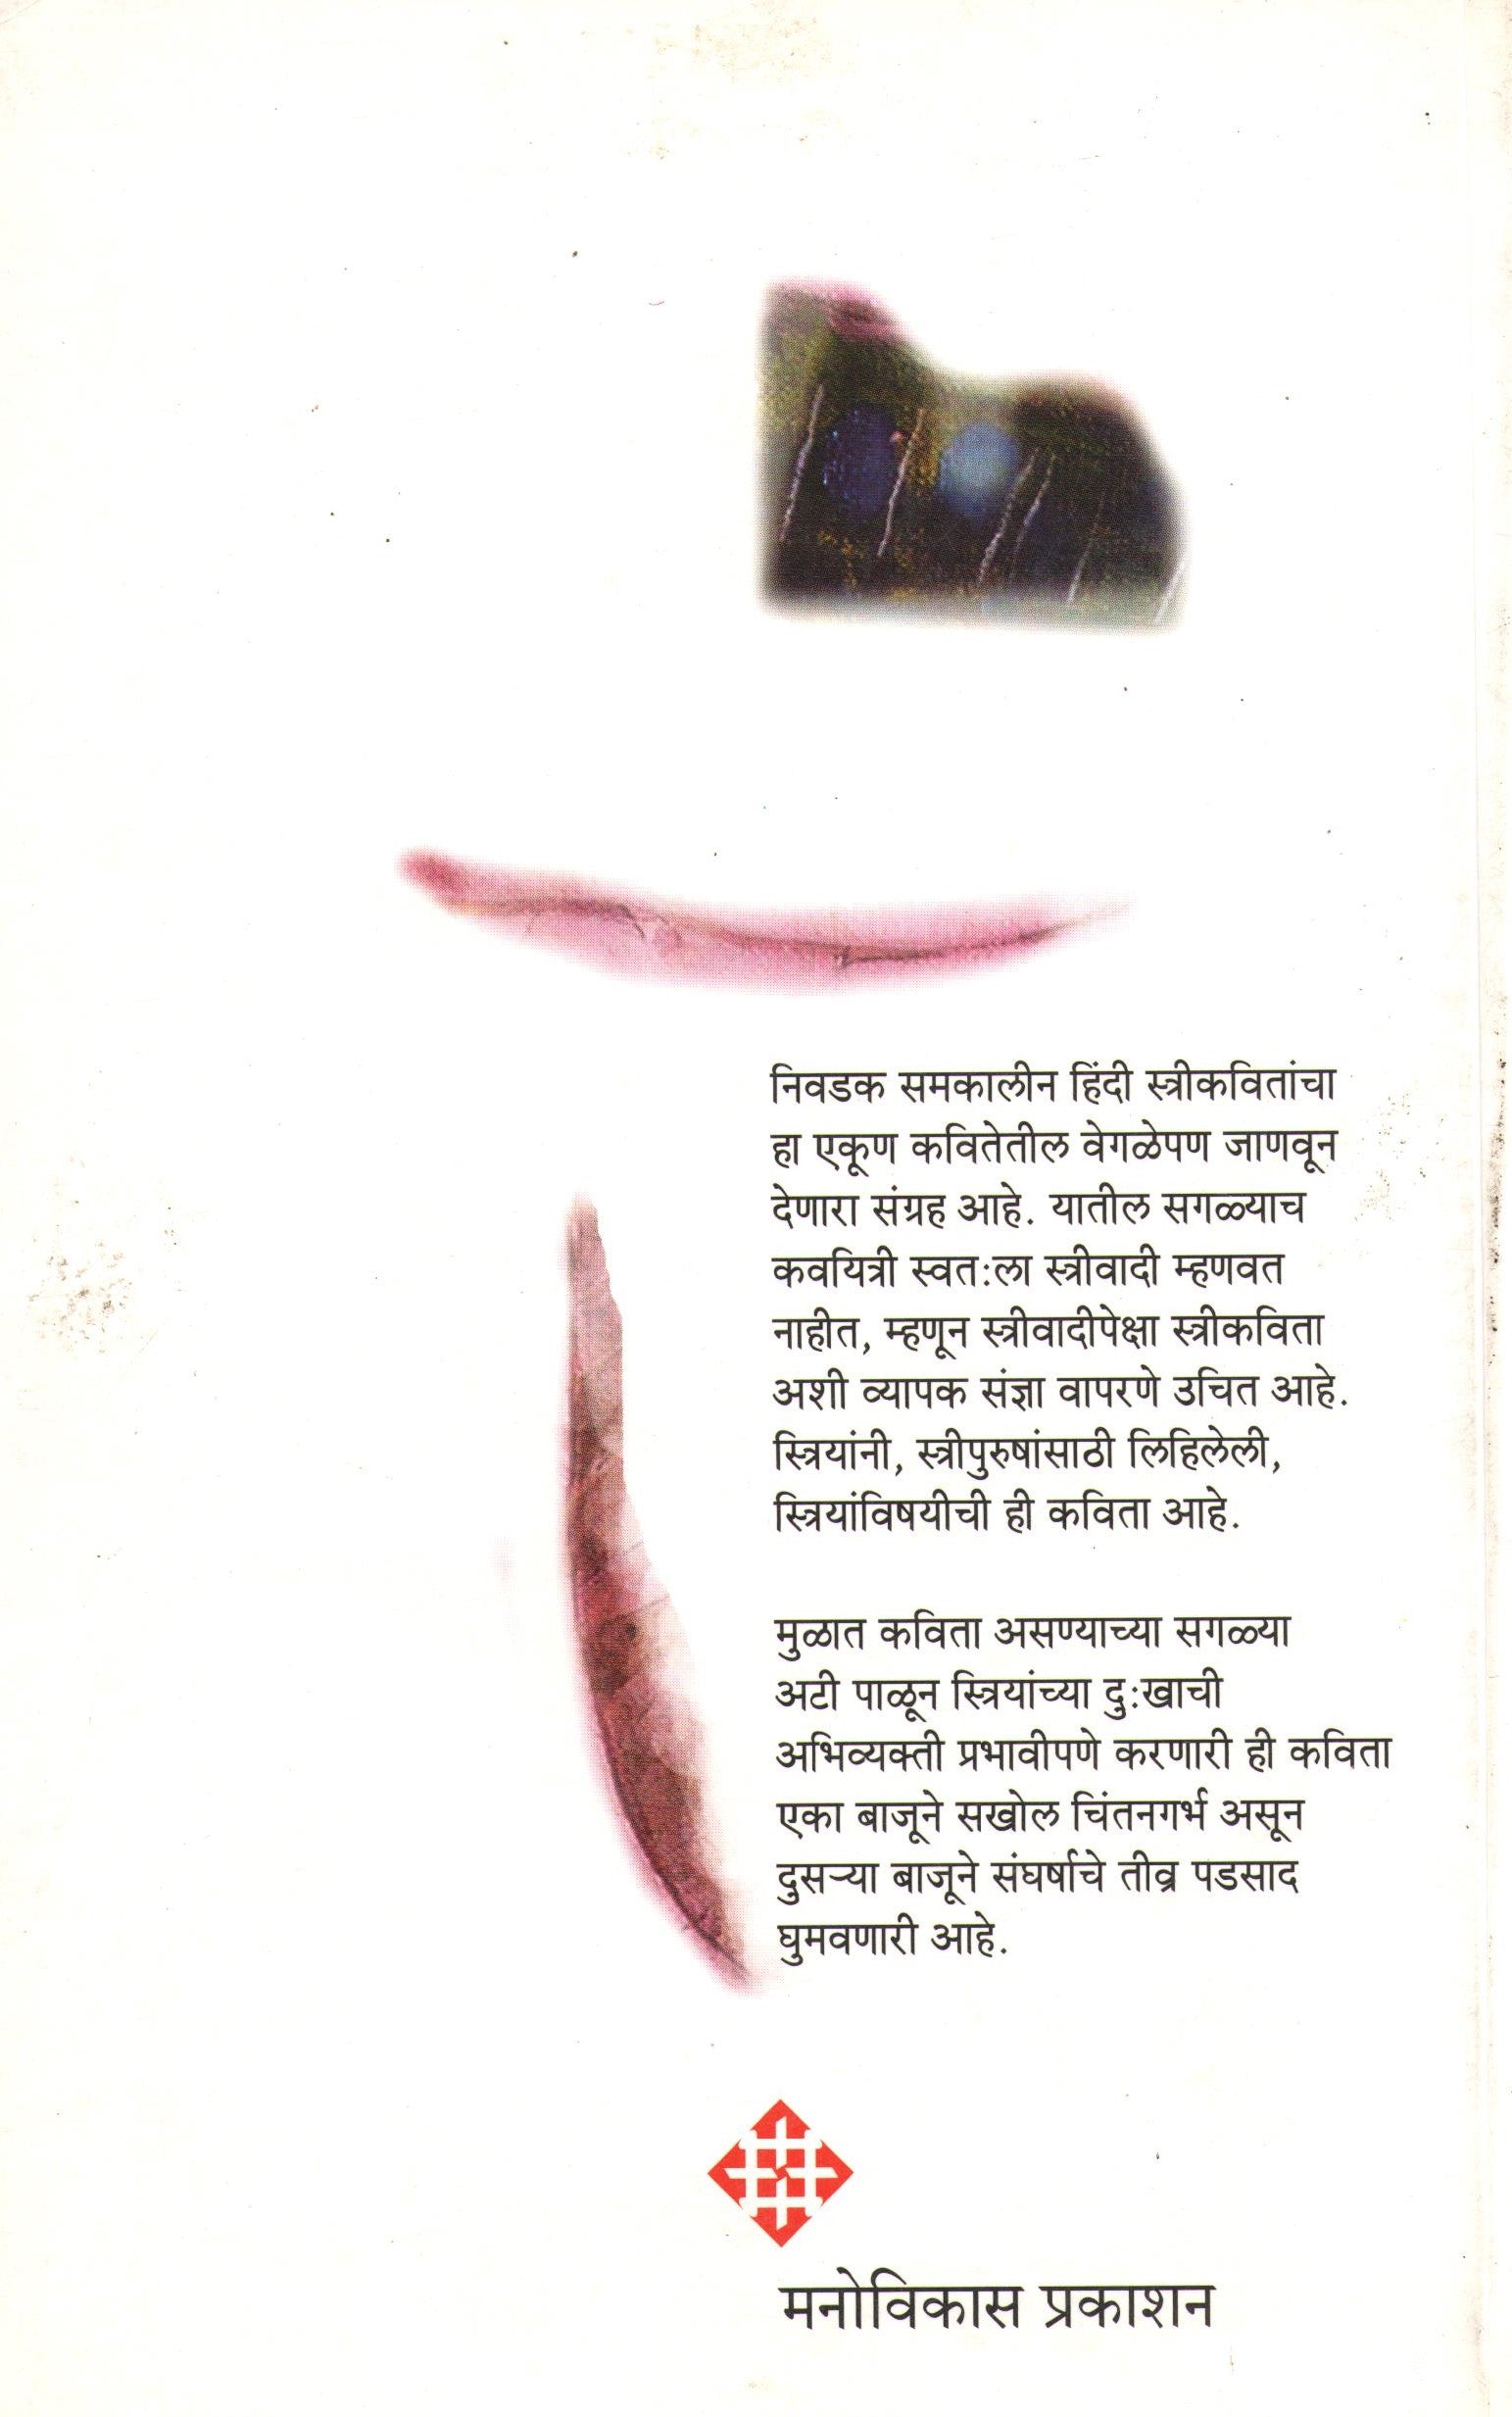 निवडक समकालीन हिंदी स्त्रीकवितांचा
हा एकूण कवितेतील वेगळेपण जाणवून
देणारा संग्रह आहे. यातील सगळ्याच
कवयित्री स्वतःला स्त्रीवादी म्हणवत
नाहीत, म्हणून स्त्रीवादीपेक्षा स्त्रीकविता
अशी व्यापक संज्ञा वापरणे उचित आहे.
स्त्रियांनी, स्त्रीपुरुषांसाठी लिहिलेली,
स्त्रियांविषयीची ही कविता आहे.
मुळात कविता असण्याच्या सगळ्या
अटी पाळून स्त्रियांच्या दुःखाची
अभिव्यक्ती प्रभावीपणे करणारी ही कविता
एका बाजूने सखोल चिंतनगर्भ असून
दुसऱ्या बाजूने संघर्षाचे तीव्र पडसाद
घुमवणारी आहे.
मनोविकास प्रकाशन